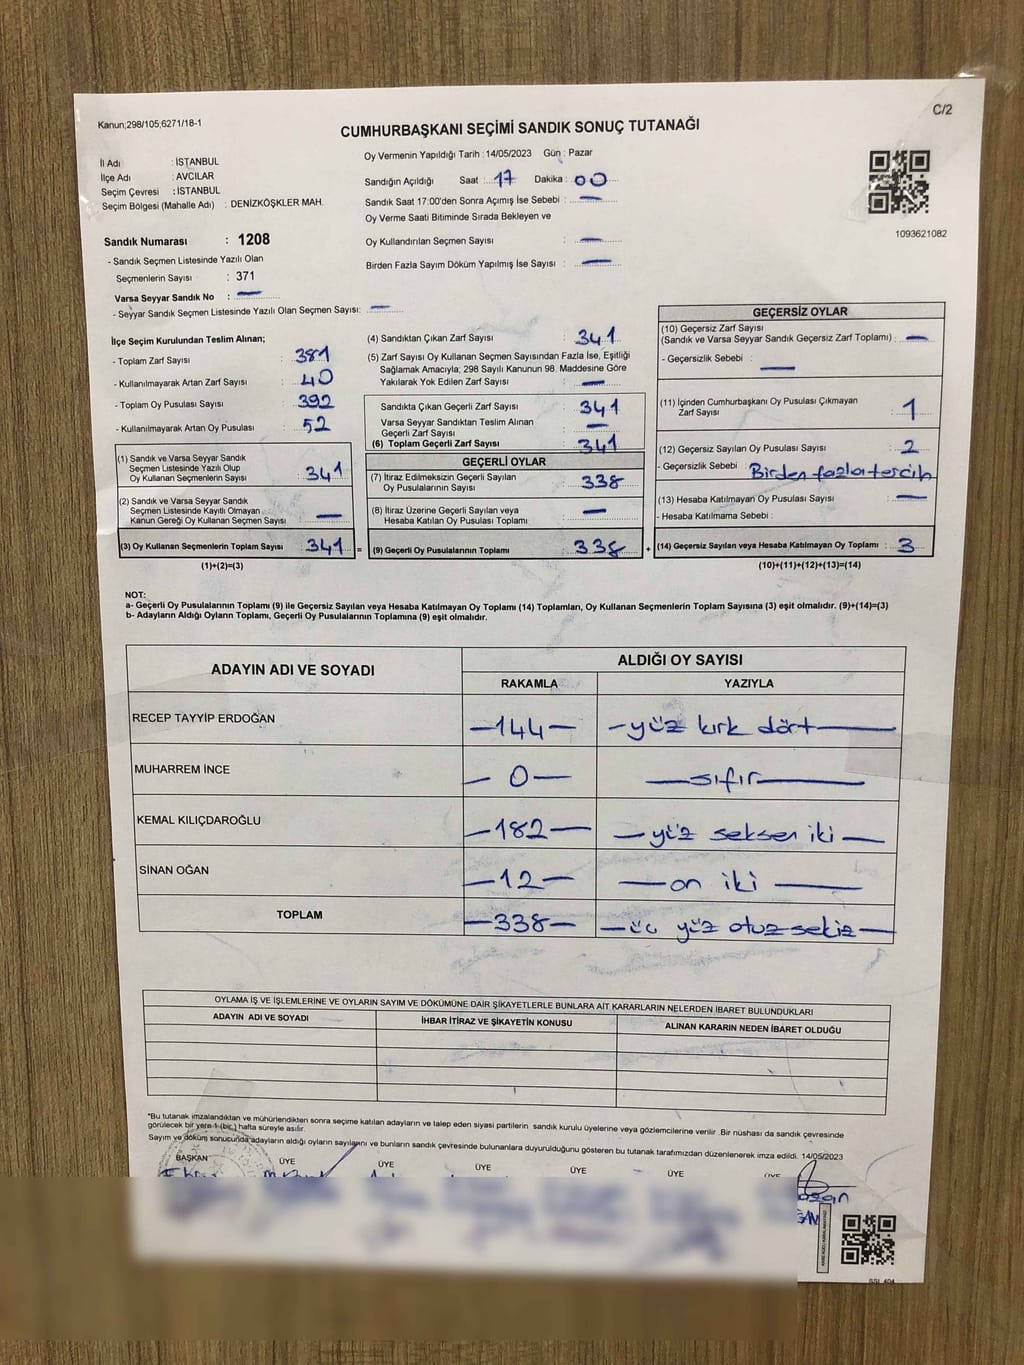 Kanun;298/105;6271/18-1
C/2
CUMHURBAŞKANI SEÇİMİ SANDIK SONUÇ TUTANAĞI
İl Adı : İSTANBUL
İlçe Adı : AVCILAR
Seçim Çevresi : İSTANBUL
Seçim Bölgesi (Mahalle Adı) : DENİZKÖŞKLER MAH.
Oy Vermenin Yapıldığı Tarih : 14/05/2023 Gün : Pazar
Sandığın Açıldığı Saat : 17 Dakika : 00
Sandık Saat 17:00'den Sonra Açımış İse Sebebi : —
Oy Verme Saati Bitiminde Sırada Bekleyen ve
Oy Kullandırılan Seçmen Sayısı : —
Birden Fazla Sayım Döküm Yapılmış İse Sayısı : —
1093621082
Sandık Numarası : 1208
- Sandık Seçmen Listesinde Yazılı Olan
Seçmenlerin Sayısı : 371
Varsa Seyyar Sandık No : —
- Seyyar Sandık Seçmen Listesinde Yazılı Olan Seçmen Sayısı: —
İlçe Seçim Kurulundan Teslim Alınan;
- Toplam Zarf Sayısı : 381
- Kullanılmayarak Artan Zarf Sayısı : 40
- Toplam Oy Pusulası Sayısı : 392
- Kullanılmayarak Artan Oy Pusulası : 52
(1) Sandık ve Varsa Seyyar Sandık
Seçmen Listesinde Yazılı Olup
Oy Kullanan Seçmenlerin Sayısı : 341
(2) Sandık ve Varsa Seyyar Sandık
Seçmen Listesinde Kayıtlı Olmayan
Kanun Gereği Oy Kullanan Seçmen Sayısı : —
(3) Oy Kullanan Seçmenlerin Toplam Sayısı : 341 =
(1)+(2)=(3)
(4) Sandıktan Çıkan Zarf Sayısı : 341
(5) Zarf Sayısı Oy Kullanan Seçmen Sayısından Fazla İse, Eşitliği
Sağlamak Amacıyla; 298 Sayılı Kanunun 98. Maddesine Göre
Yakılarak Yok Edilen Zarf Sayısı : —
Sandıkta Çıkan Geçerli Zarf Sayısı : 341
Varsa Seyyar Sandıktan Teslim Alınan
Geçerli Zarf Sayısı : —
(6) Toplam Geçerli Zarf Sayısı : 341
GEÇERLİ OYLAR
(7) İtiraz Edilmeksizin Geçerli Sayılan
Oy Pusulalarının Sayısı : 338
(8) İtiraz Üzerine Geçerli Sayılan veya
Hesaba Katılan Oy Pusulası Toplamı : —
(9) Geçerli Oy Pusulalarının Toplamı : 338 +
GEÇERSİZ OYLAR
(10) Geçersiz Zarf Sayısı
(Sandık ve Varsa Seyyar Sandık Geçersiz Zarf Toplamı) : —
- Geçersizlik Sebebi : —
(11) İçinden Cumhurbaşkanı Oy Pusulası Çıkmayan
Zarf Sayısı : 1
(12) Geçersiz Sayılan Oy Pusulası Sayısı : 2
- Geçersizlik Sebebi : Birden fazla tercih
(13) Hesaba Katılmayan Oy Pusulası Sayısı : —
- Hesaba Katılmama Sebebi :
(14) Geçersiz Sayılan veya Hesaba Katılmayan Oy Toplamı : 3
(10)+(11)+(12)+(13)=(14)
NOT:
a- Geçerli Oy Pusulalarının Toplamı (9) ile Geçersiz Sayılan veya Hesaba Katılmayan Oy Toplamı (14) Toplamları, Oy Kullanan Seçmenlerin Toplam Sayısına (3) eşit olmalıdır. (9)+(14)=(3)
b- Adayların Aldığı Oyların Toplamı, Geçerli Oy Pusulalarının Toplamına (9) eşit olmalıdır.
ADAYIN ADI VE SOYADI ALDIĞI OY SAYISI
RAKAMLA YAZIYLA
RECEP TAYYİP ERDOĞAN —144— —yüz kırk dört—
MUHARREM İNCE —0— —sıfır—
KEMAL KILIÇDAROĞLU —182— —yüz seksen iki—
SİNAN OĞAN —12— —on iki—
TOPLAM —338— —üç yüz otuz sekiz—
OYLAMA İŞ VE İŞLEMLERİNE VE OYLARIN SAYIM VE DÖKÜMÜNE DAİR ŞİKAYETLERLE BUNLARA AİT KARARLARIN NELERDEN İBARET BULUNDUKLARI
ADAYIN ADI VE SOYADI İHBAR İTİRAZ VE ŞİKAYETİN KONUSU ALINAN KARARIN NEDEN İBARET OLDUĞU
*Bu tutanak imzalandıktan ve mühürlendikten sonra seçime katılan adayların ve talep eden siyasi partilerin sandık kurulu üyelerine veya gözlemcilerine verilir. Bir nüshası da sandık çevresinde
görülecek bir yere 1 (bir) hafta süreyle asılır.
Sayım ve döküm sonucunda adayların aldığı oyların sayılarını ve bunların sandık çevresinde bulunanlara duyurulduğunu gösteren bu tutanak tarafımızdan düzenlenerek imza edildi. 14/05/2023
BAŞKAN ÜYE ÜYE ÜYE ÜYE ÜYE ÜYE